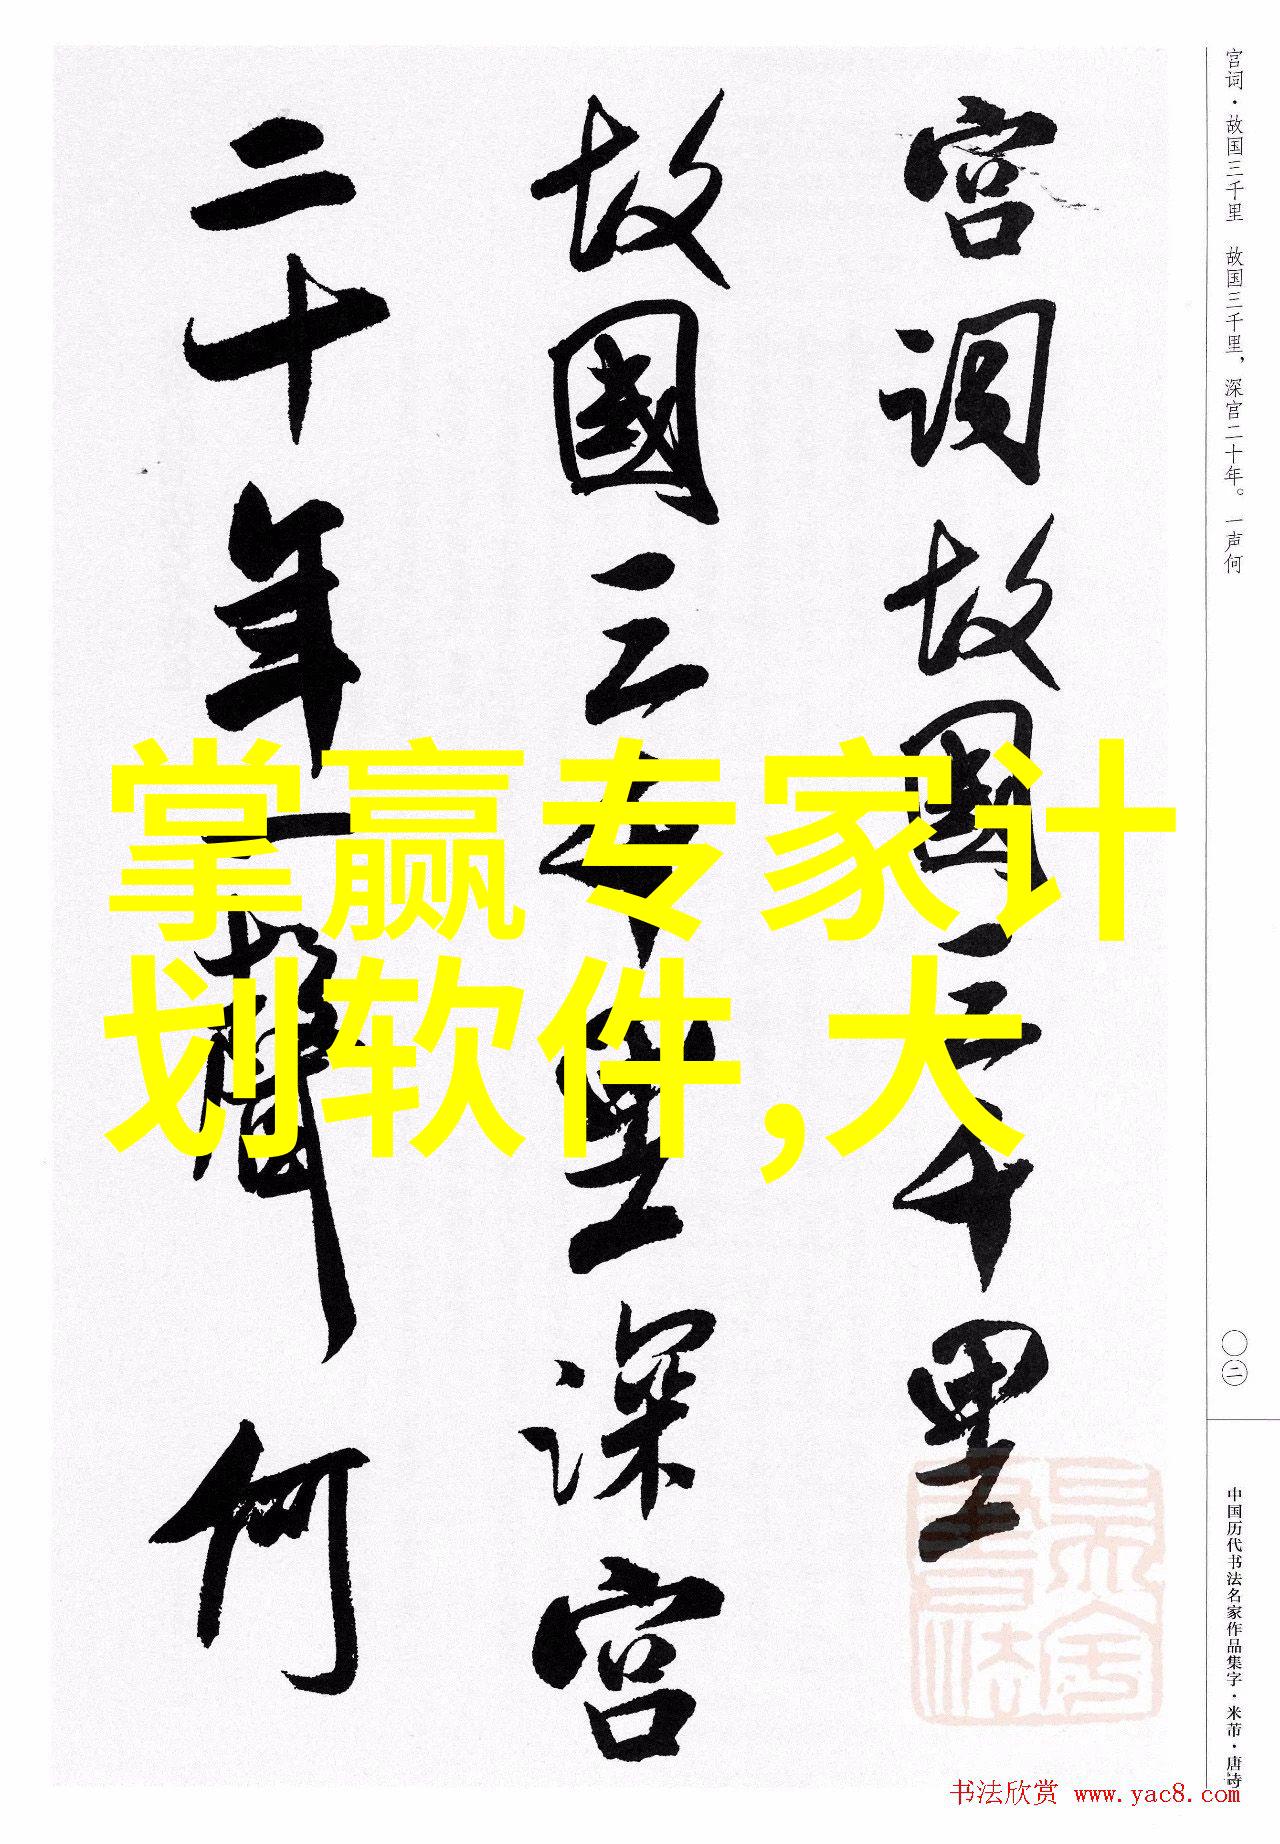 宫词·故国三千里 故国三千里，深宫二十年。一声何
宫词故国三千里
故國三千里深宫
二十年一聲何
掌赢专家计
划软件,大
〇二
中国历代书法名家作品集字·米芾·唐诗
书法欣赏 www.yac8.com